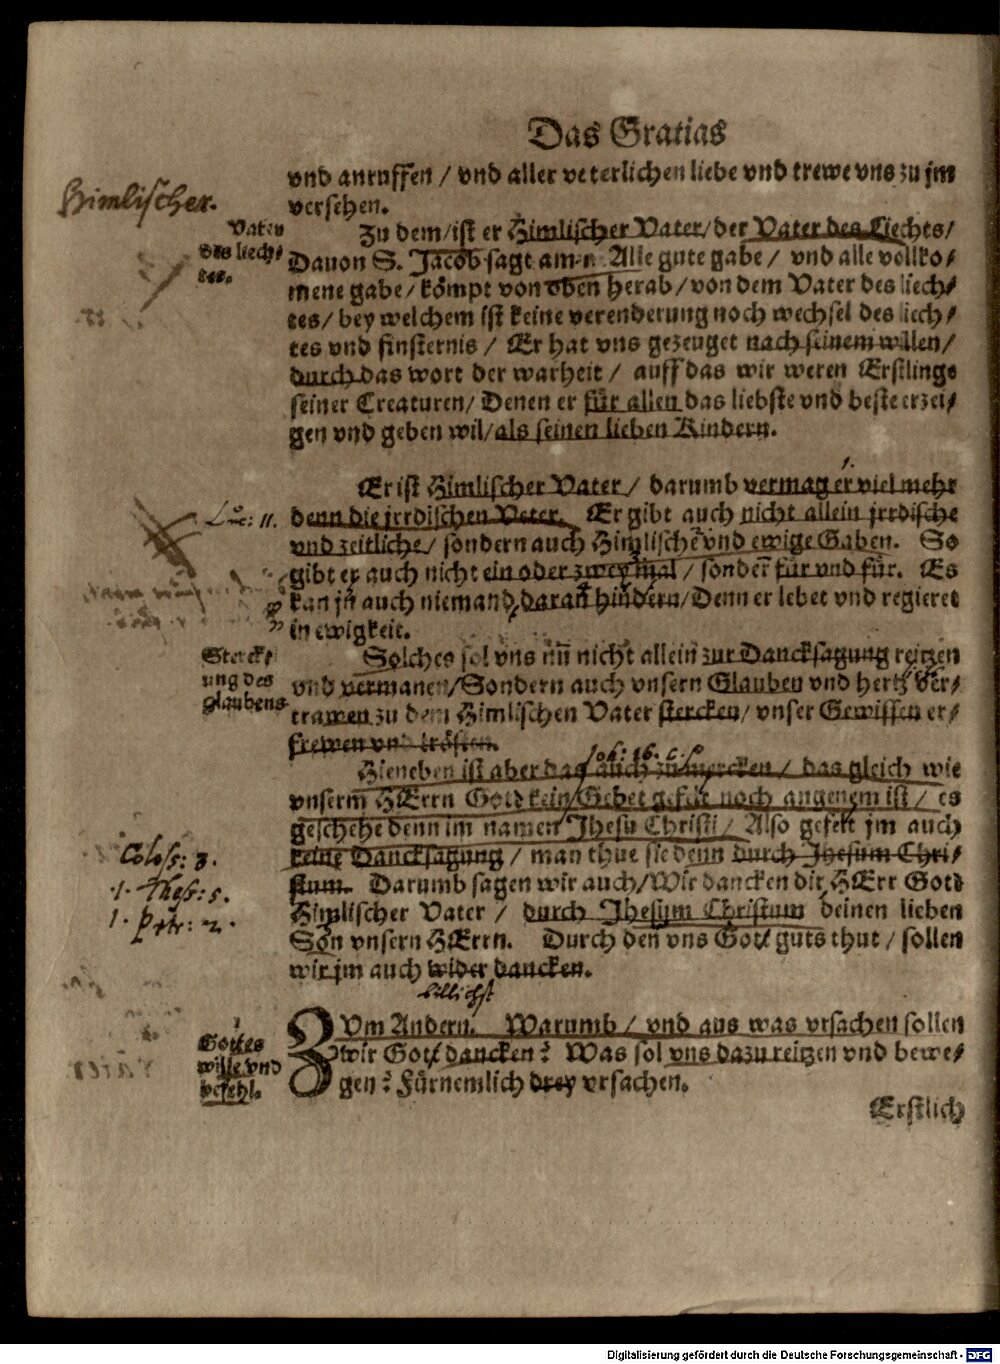 Das Gratias
vnd anruffen / vnd aller veterlichen liebe vnd trewe vns zu jm
versehen.
Himlischer.
Vater
des liech⸗
tes.
Zu dem / ist er Himlischer Vater / der Vater des Liechts /
Dauon S. Jacob sagt am 1. Alle gute gabe / vnd alle vollko⸗
mene gabe / kömpt von oben herab / von dem Vater des liech⸗
tes / bey welchem ist keine verenderung noch wechsel des liech⸗
tes vnd finsternis / Er hat vns gezeuget nach seinem willen /
durch das wort der warheit / auff das wir weren Erstlinge
seiner Creaturen / Denen er für allen das liebste vnd beste erzei⸗
gen vnd geben wil / als seinen lieben Kindern.
Er ist Himlischer Vater / darumb vermag er viel mehr
Luc: 11.
denn die jrrdischen Veter. Er gibt auch nicht allein jrrdische
vnd zeitliche / sondern auch Himlische vnd ewige Gaben. So
gibt er auch nicht ein oder zwey mal / sondern̄ für vnd für. Es
kan jn auch niemand daran hindern / Denn er lebet vnd regieret
in ewigkeit.
Sterck⸗
ung des
glaubens
Solches sol vns nū nicht allein zur Dancksagung reitzen
vnd vermanen / Sondern auch vnsern Glauben vnd hertz ver⸗
trawen zu dem Himlischen Vater stercken / vnser Gewissen er⸗
frewen vnd trösten.
Joh: 16.
Hieneben ist aber das auch zu mercken / das gleich wie
vnserm HErrn Gott kein Gebet gefelt noch angenem ist / es
geschehe denn im namen Jhesu Christi / Also gefelt jm auch
keine Dancksagung / man thue sie denn durch Jhesum Chri⸗
stum. Darumb sagen wir auch / Wir dancken dir HErr Gott
Himlischer Vater / durch Jhesum Christum deinen lieben
Son vnsern HErrn. Durch den vns Gott guts thut / sollen
wir jm auch wider dancken.
Coloss: 3.
1. Thess: 5.
1. Petr: 2.
billichst
Gottes
wille vnd
befehl.
ZVm Andern. Warumb / vnd aus was vrsachen sollen
wir Gott dancken? Was sol vns dazu reitzen vnd bewe⸗
gen? Fürnemlich drey vrsachen.
Erstlich
Digitalisierung gefördert durch die Deutsche Forschungsgemeinschaft - DFG